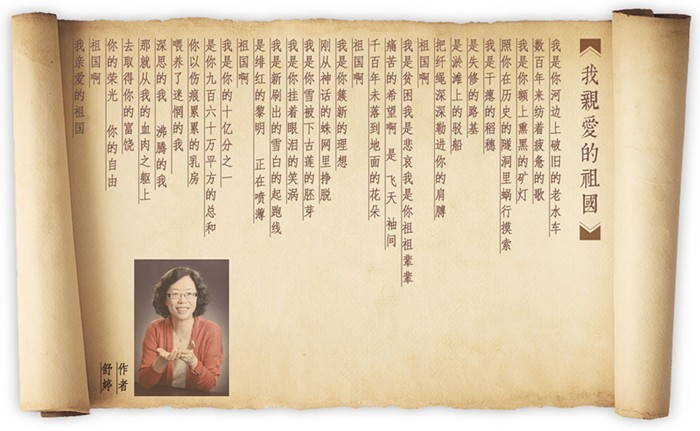 我親愛的祖國
我是你河边上破旧的老水车
数百年来纺着疲惫的歌
我是你额上熏黑的矿灯
照你在历史的隧洞里蜗行摸索
我是干瘪的稻穗
是失修的路基
是淤滩上的驳船
把纤绳深深勒进你的肩膊
祖国啊
我是贫困我是悲哀我是你祖祖辈辈
痛苦的希望啊 是 飞天 袖间
千百年未落到地面的花朵
祖国啊
我是你簇新的理想
刚从神话的蛛网里挣脱
我是你雪被下古莲的胚芽
我是你挂着眼泪的笑涡
我是新刷出的雪白的起跑线
是绯红的黎明 正在喷薄
祖国啊
我是你的十亿分之一
是你九百六十万平方的总和
你以伤痕累累的乳房
喂养了迷惘的我
深思的我 沸腾的我
那就从我的血肉之躯上
去取得你的富饶
你的荣光 你的自由
祖国啊
我亲爱的祖国
作者
舒婷